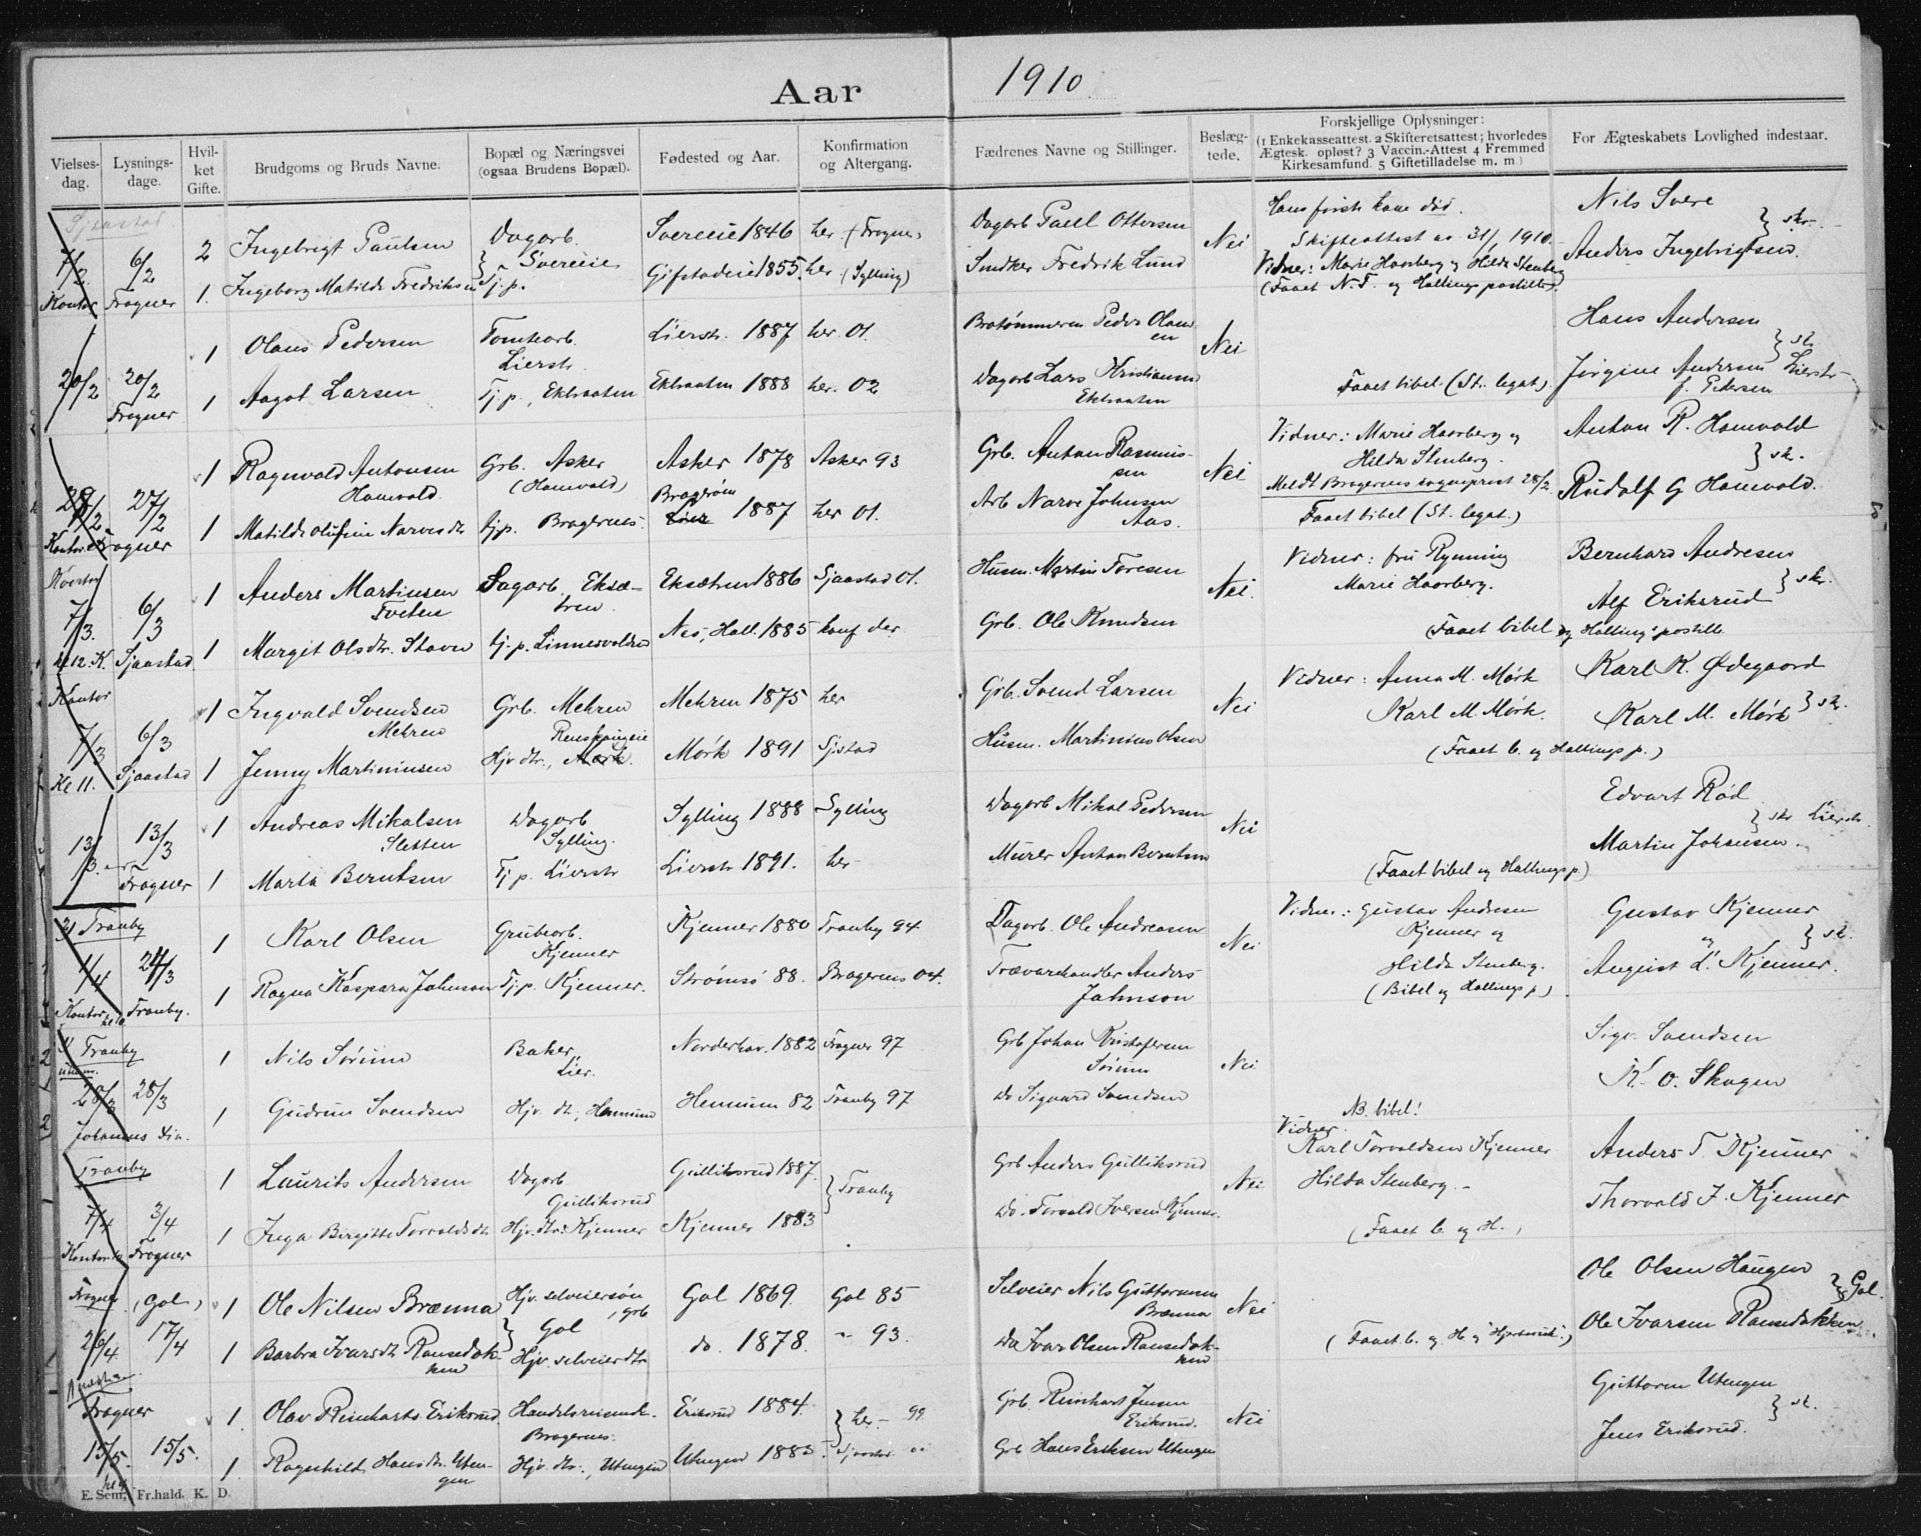 Aar 1910
Vielses-dag. Lysnings-dage. Hvil-ket Gifte. Brudgoms og Bruds Navne. Bopæl og Næringsvei (ogsaa Brudens Bopæl). Fødested og Aar. Konfirmation og Altergang. Fædrenes Navne og Stillinger. Beslæg-tede. Forskjellige Oplysninger: (1 Enkekasseattest. 2 Skifteretsattest; hvorledes Ægtesk. opløst? 3 Vaccin.-Attest 4 Fremmed Kirkesamfund. 5 Giftetilladelse m. m) For Ægteskabets Lovlighed indestaar.
Sjaastad
Hans første kone død. Nils Svere
7/2 6/2 2 Ingebrigt Paulsen Dagarb. Svereeie 1846 her (Frogner) Dagarb Paul Ottersen Nei Skifteattest av 31/1 1910. } sk.
Svereeie Vidner: Marie Haarberg og Hilda Stenberg Anders Ingebrigtsen.
Kontor Frogner 1. Ingeborg Matilde Fredriksen Tj.p. Gifstadeie 1855. her (Sylling) Smdker Fredrik Lund (Faaet N.T. og Hallings postille).
1 Olaus Pedersen Tomtearb. Lierstr. Lierstr. 1887 her 01. Brotømmeren Peder Olausen Nei Hans Andersen } sk.
20/2 20/2 Frogner 1 Aagot Larsen Tj.p., Eklraaten 1888 her. 02 Dagarb Lars Kristiansen Faaet bibel (St. legat) Jørgine Andersen f. Pedersen Lierstr.
1 Ragnvald Antonsen Hamvold. Grb. Asker (Hamvold) Asker 1878 Asker 93 Grb. Anton Rasmussen Nei Vidner: Marie Haarberg og Hilda Stenberg. Anton R. Hamvold } sk.
28/2 27/2 Meldt Bragernes sogneprest 28/2 Rudolf G Hamvold.
Kontor Frogner 1 Matilde Olufine Narvesdtr tj.p. Bragernes. Bragerøen 1887 her 01. Arb Narve Johnsen Aas. Faaet bibel (St. legat.)
1 Anders Martinsen Tveten Sagarb, Eksætren. Eksætren 1886 Sjaastad 01. Husm. Martin Toresen Nei. Vidner: fru Rynning Marie Haarberg. Bernhard Andresen } sk.
7/3. 6/3 Alf Eriksrud
kl 12. K. Sjaastad 1 Margit Olsdtr. Staven tj.p. Nes, Hall. 1885 konf der Grb. Ole Knudsen (Faaet bibel og Halling's postille
Kontor 1 Ingvald Svendsen Mehren Grb. Mehren Mehren 1875 her Grb. Svend Larsen Nei Vidner: Anna M. Mørk Karl K. Ødegaard
7/3 6/3 Karl M. Mørk. Karl M. Mørk } sk.
Kl 11. Sjaastad 1 Jenny Martiniusen Hjv. dtr., Mørk. Mørk 1891 Sjstad Husm. Martinius Olsen (Faaet b. og Hallings p.)
1 Andreas Mikalsen Sletten Dagarb Sylling. Sylling 1888 Sylling Dagarb Mikal Pedersen Nei Edvart Rød } sk Lierstr.
13/3. 13/3 Martin Johansen.
Frogner 1 Marta Berntsen Tj p. Lierstr Lierstr 1891. her Murer Anton Berntsen (Faaet bibel og Hallings p.)
Tranby 1 Karl Olsen Grubearb. Kjenner Kjenner 1880 Tranby 94 Dagarb. Ole Andreasen Nei Vidner: Gustav Andresen Kjenner og Gustav Kjenner og } sk.
1/4 24/3 Hilda Stenberg. August L. Kjenner.
Kontor Tranby. 1 Ragna Kaspara Johnson Tj.p. Kjenner. Strømsø 88. Bragernes 04. Trævarehandler Anders Johnson (Bibel og Hallings p)
Tranby 1 Nils Sørum Baker, Lier. Norderhov. 1882 Frogner 97 Grb Johan Kristofersen Sørum Nei Sigv. Svendsen
28/3 28/3 1 Gudrun Svendsen Hjv. dt., Hennum Hennum 82 Tranby 97 Do Sigvard Svendsen NB. bibel! K. O. Skogen
Tranby 1 Laurits Andersen Dagarb Gulliksrud Gulliksrud 1887. } Tranby Grb Anders Gulliksrud Nei Vidner. Karl Torvaldsen Kjenner Hilda Stenberg. Anders T. Kjenner
7/4 3/4 Thorvald I. Kjenner
Kontor Frogner 1 Inga Birgitte Torvaldsdtr Hjv. dtr: Kjenner Kjenner 1883 Do. Torvald Iversen Kjenner. (Faaet b. og H.)
Frogner (Gol) 1 Ole Nilsen Brænna Hjv. selveiersøn, grb Gol 1869. Gol 85 Selveier Nils Guttormsen Brænna Nei Ole Olsen Haugen } Gol.
Gol
26/4 17/4 1 Barbra Ivarsdt Ransedokken Hjv. selveierdtr do. 1878. " 93. Do Ivar Olsen Ransedokken (Faaet b. og H. Ole Ivarsen Ransedokken
Frogner 1. Olav Reinharts. Eriksrud Handelsreisende. Bragernes. Eriksrud 1884. } her. 99 Grb. Reinhart Jensen Eriksrud. Nei Guttorm Utengen } sk.
15/5. 15/5. 1. Ragnhild Hansdtr. Utengen Hjv. dtr., Utengen Utengen 1885. Sjaastad. Grb Hans Eriksen Utengen Jens Eriksrud.
E. Sem, Fr.hald. K. D.